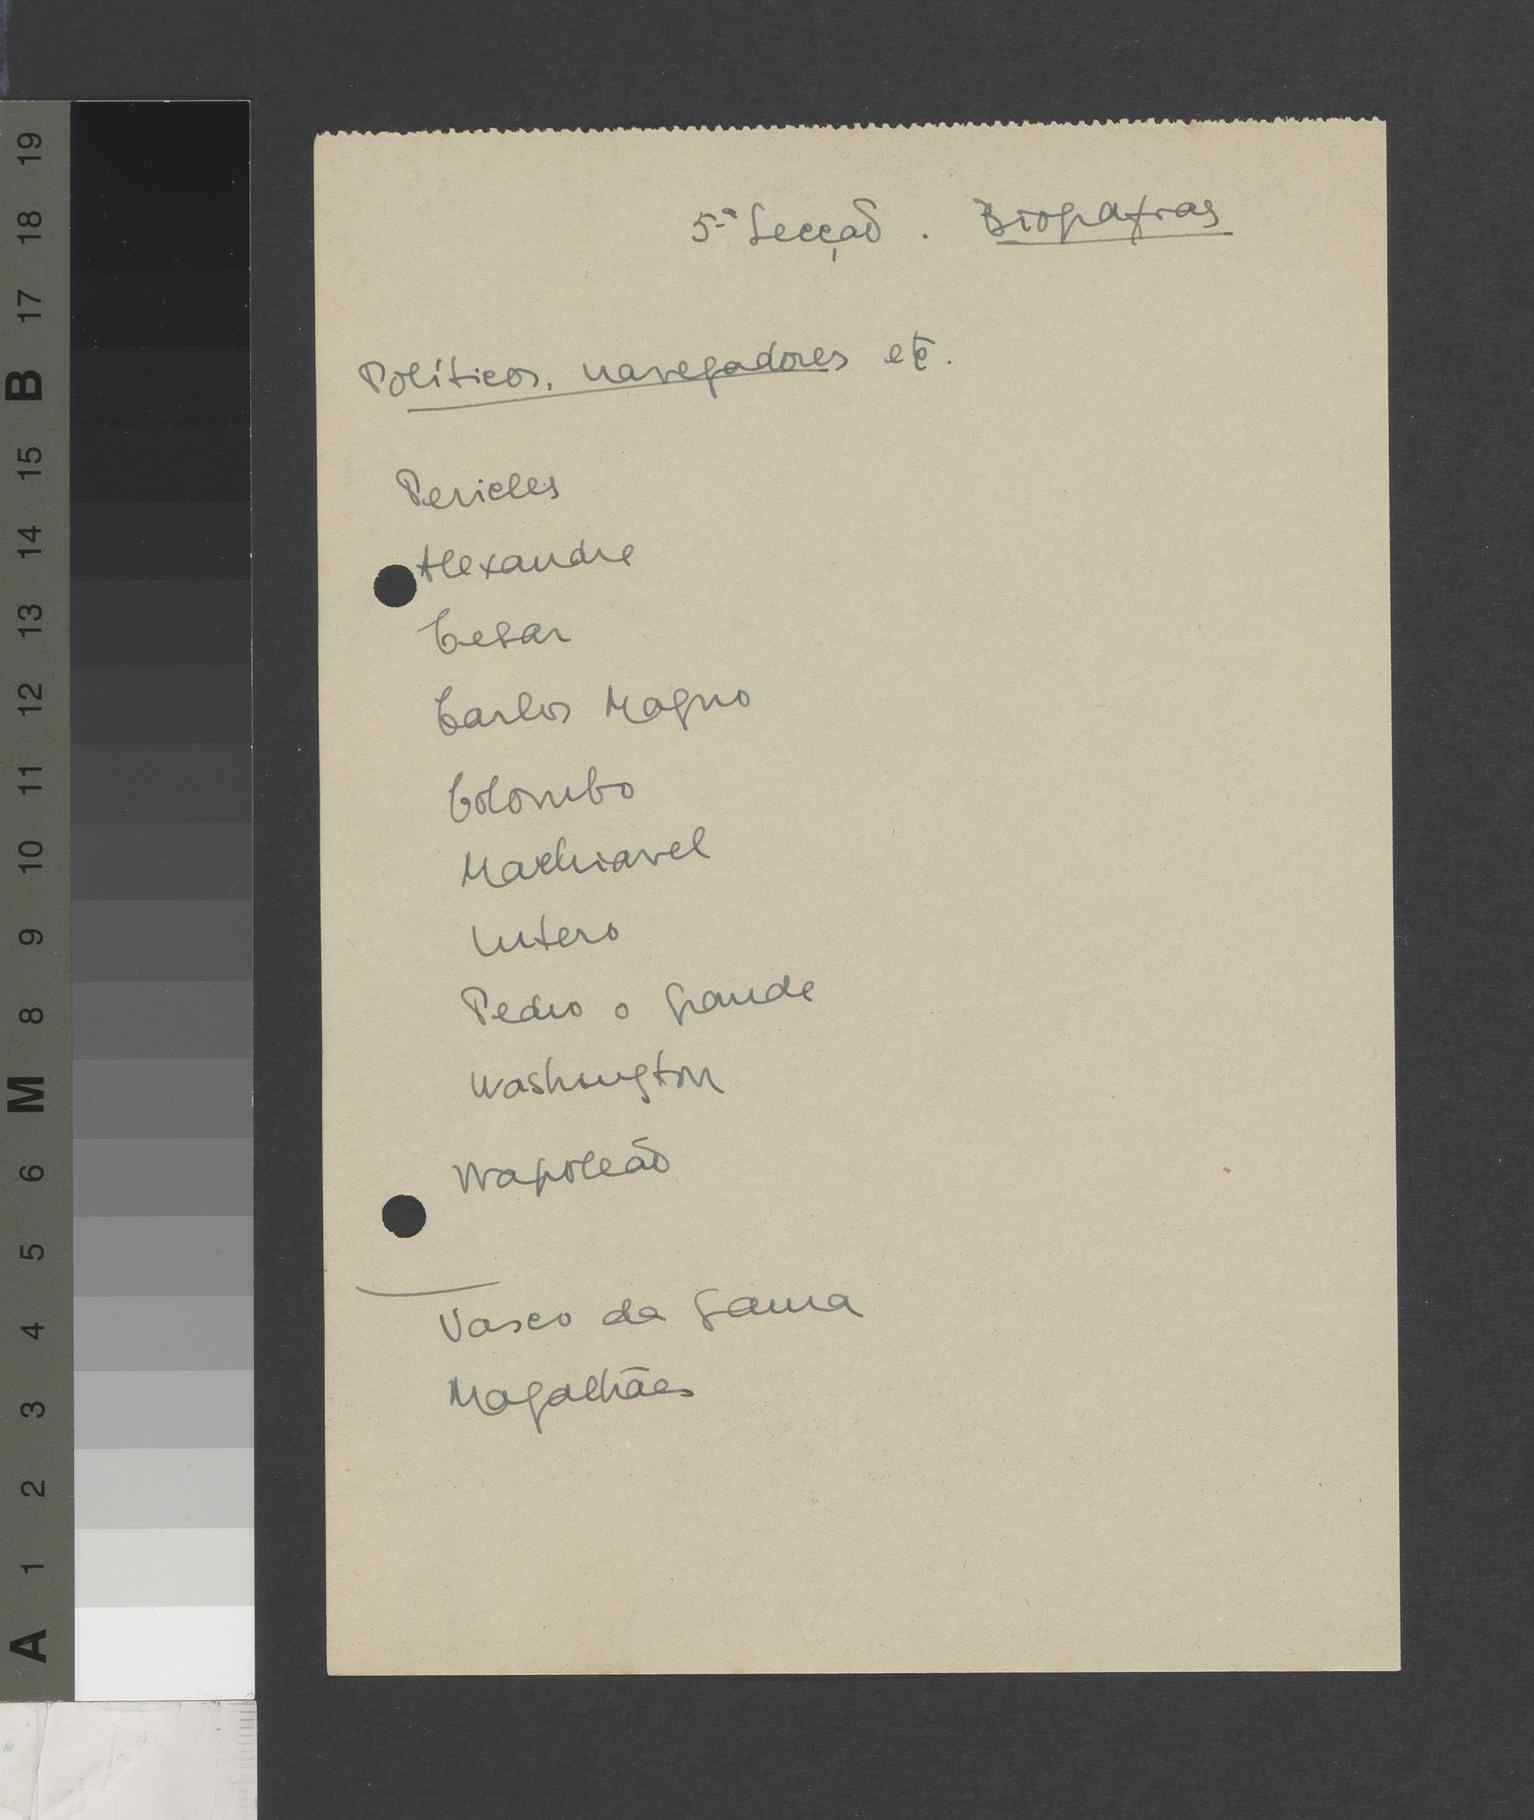 5-ª Secção. Biografias
Políticos, navegadores etc.
Pericles
Alexandre
Cesar
Carlos Magno
Colombo
Machiavel
Lutero
Pedro o Grande
Washington
Napoleão
Vasco da Gama
Magalhães
19
18
17
B
15
14
13
12
11
10
9
8
M
6
5
4
3
2
1
A